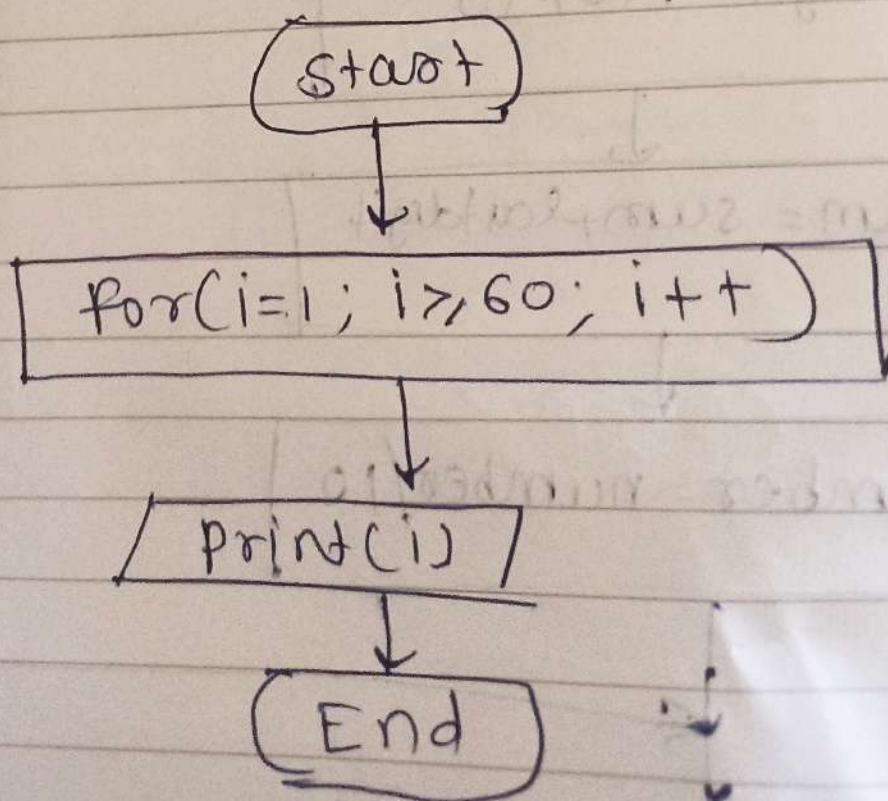 Start
for(i=1; i≥60; i++)
Print(i)
End